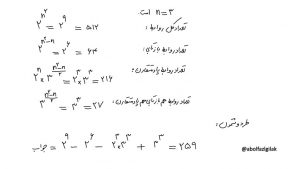 n=3 است
تعداد کل روابط:
2^{n^2} = 2^9 = 512
تعداد روابط بازتابی:
2^{n^2-n} = 2^6 = 64
تعداد روابط پادمتقارن:
2^n × 3^{\frac{n^2-n}{2}} = 2^3 × 3^3 = 216
تعداد روابط هم بازتابی هم پادمتقارن:
3^{\frac{n^2-n}{2}} = 3^3 = 27
طرد و شمول:
جواب = 2^9 - 2^6 - 2^3×3^3 + 3^3 = 259
@abolfazlgilak